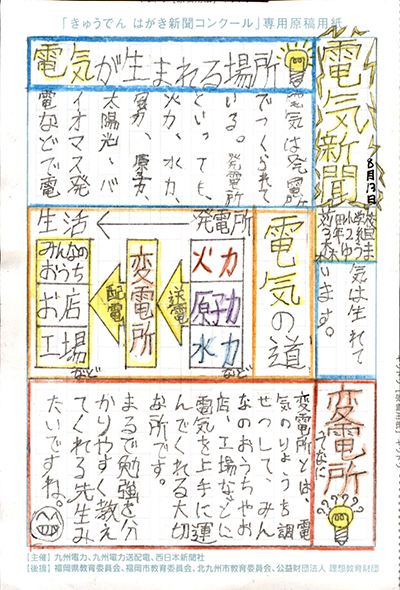 「きゅうでん はがき新聞コンクール」専用原稿用紙
電気新聞
8月13日
電気が生まれる場所
電気は発電所
でつくられて
いる。発電所
といっても、
火力、水力、
風力、原子力、
太陽光、バ
イオマス発
電などで電
気は生れて
います。
電気の道
発電所
生活
火力
原子力
水力
など
送電
変電所
配電
みんなの
おうち
お店
工場
など
変電所
変電所とは、電
気のりょうを調
せつして、みん
なのおうちやお
店、工場などに
電気を上手に運
んでくれる大切
な所です。
まるで勉強を分
かりやすく教え
てくれる先生み
たいですね。
【主催】九州電力、九州電力送配電、西日本新聞社
【後援】福岡県教育委員会、福岡市教育委員会、北九州市教育委員会、公益財団法人 理想教育財団